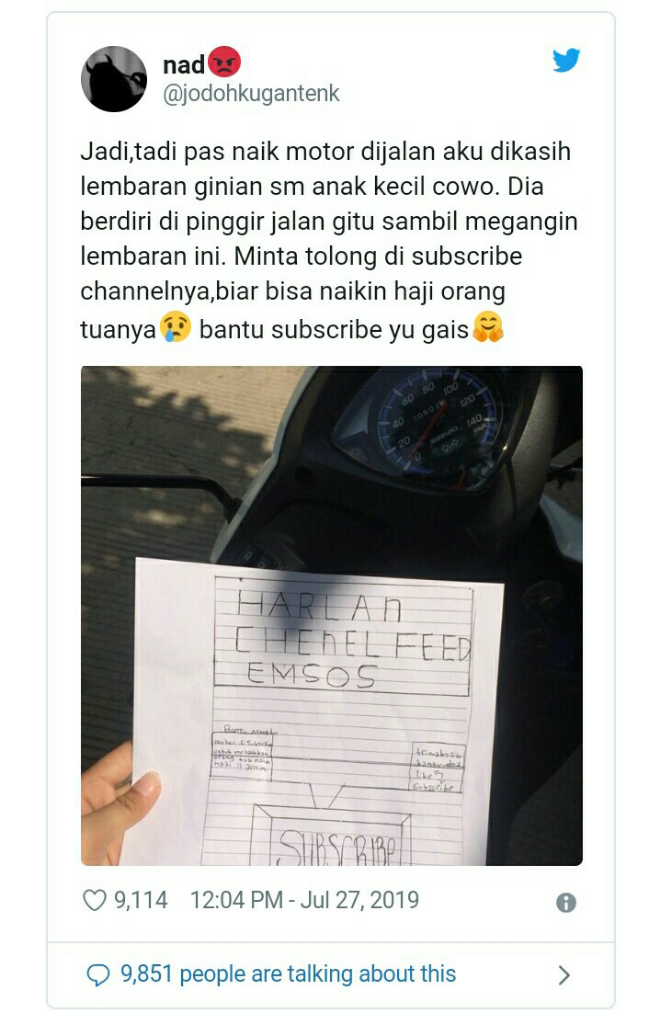 nad
@jodohkugantenk
Jadi,tadi pas naik motor dijalan aku dikasih
lembaran ginian sm anak kecil cowo. Dia
berdiri di pinggir jalan gitu sambil megangin
lembaran ini. Minta tolong di subscribe
channelnya,biar bisa naikin haji orang
tuanya😢 bantu subscribe yu gais🤗
20 40 60 80 100 120 140
SUZUKI
HARLAn
CHEnEL FEED
EMSOS
untuk
orang tua
bantu doa
like
Subscribe
SUBSCRIBE
9,114 12:04 PM - Jul 27, 2019
9,851 people are talking about this